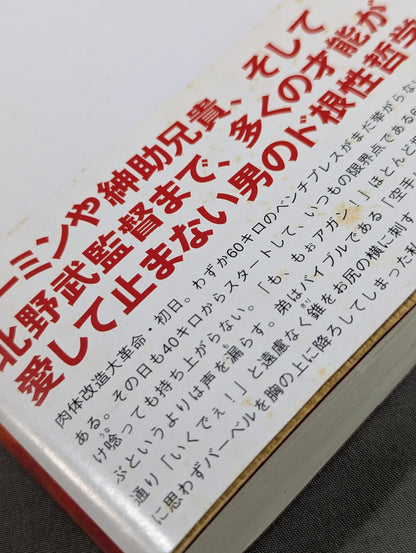 ーミンや紳助兄貴、そして
北野武監督まで、多くの才能が
愛して止まない男のド根性哲学
肉体改造大革命・初日。わずか60キロのベンチプレスがまだ挙がらな
ある。その日も40キロからスタートして、いつもの限界点である6
け唸っても持ち上がらない。「も、もぉアガン！」ほとんど
ぶというよりは声を漏らす。弟はバイブルである「空手
通り「いくでぇ！」と遠慮なく錐をお尻の横に刺す
に思わずバーベルを胸の上に降ろしてしまった